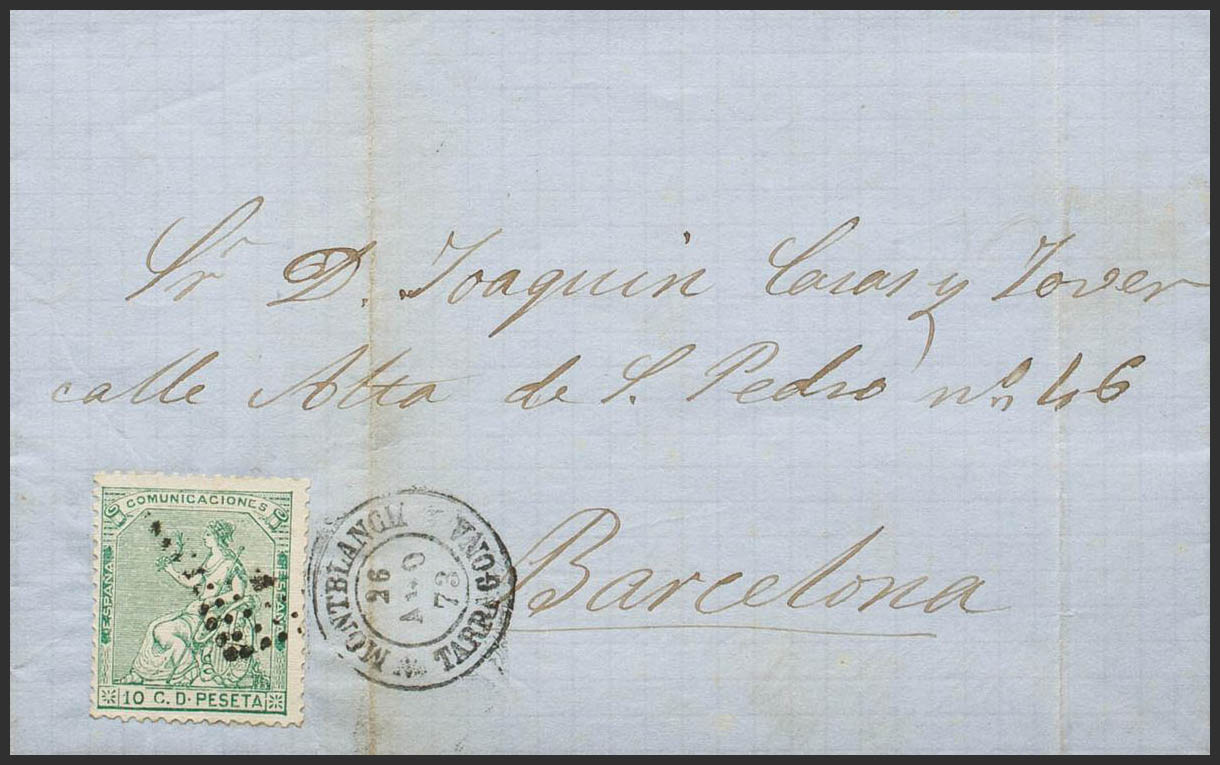 Sr D. Joaquin Casas y Tover
calle Alta de S. Pedro nº 46
Barcelona
COMUNICACIONES
ESPAÑA
10 C. D. PESETA
MONTBLANCH
TARRAGONA
26
AGO
73